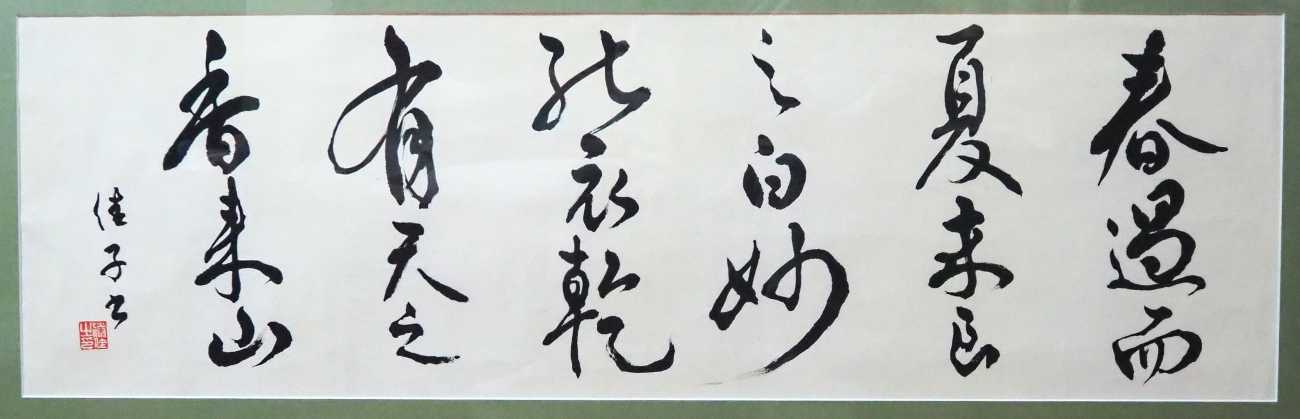 春過而
夏来良
之白妙
能衣乾
有天之
香来山
佳子書